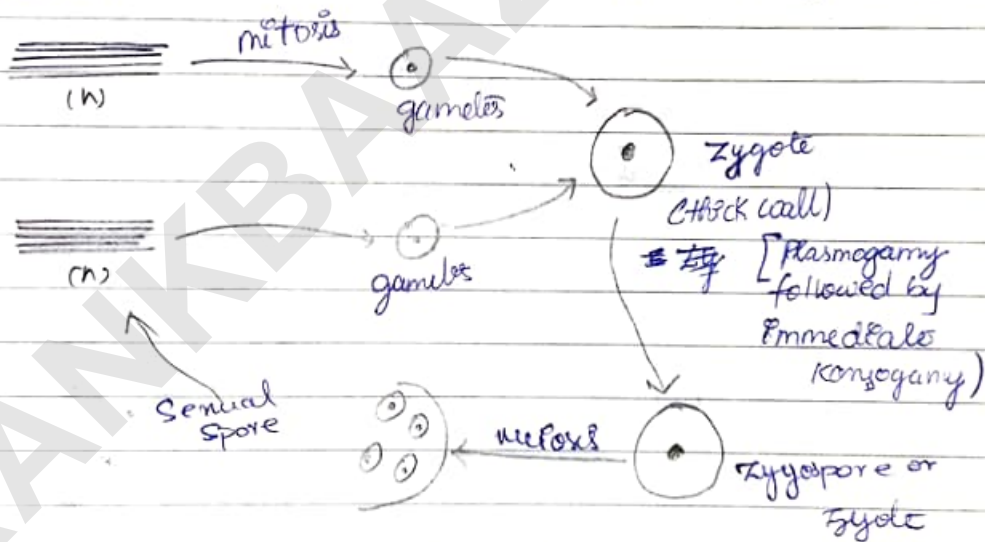 mitosis
(n)
gametes
zygote
(thick wall)
[Plasmogamy
followed by
immediate
(n)
gametes
Sexual
spore
meiosis
zygospore or